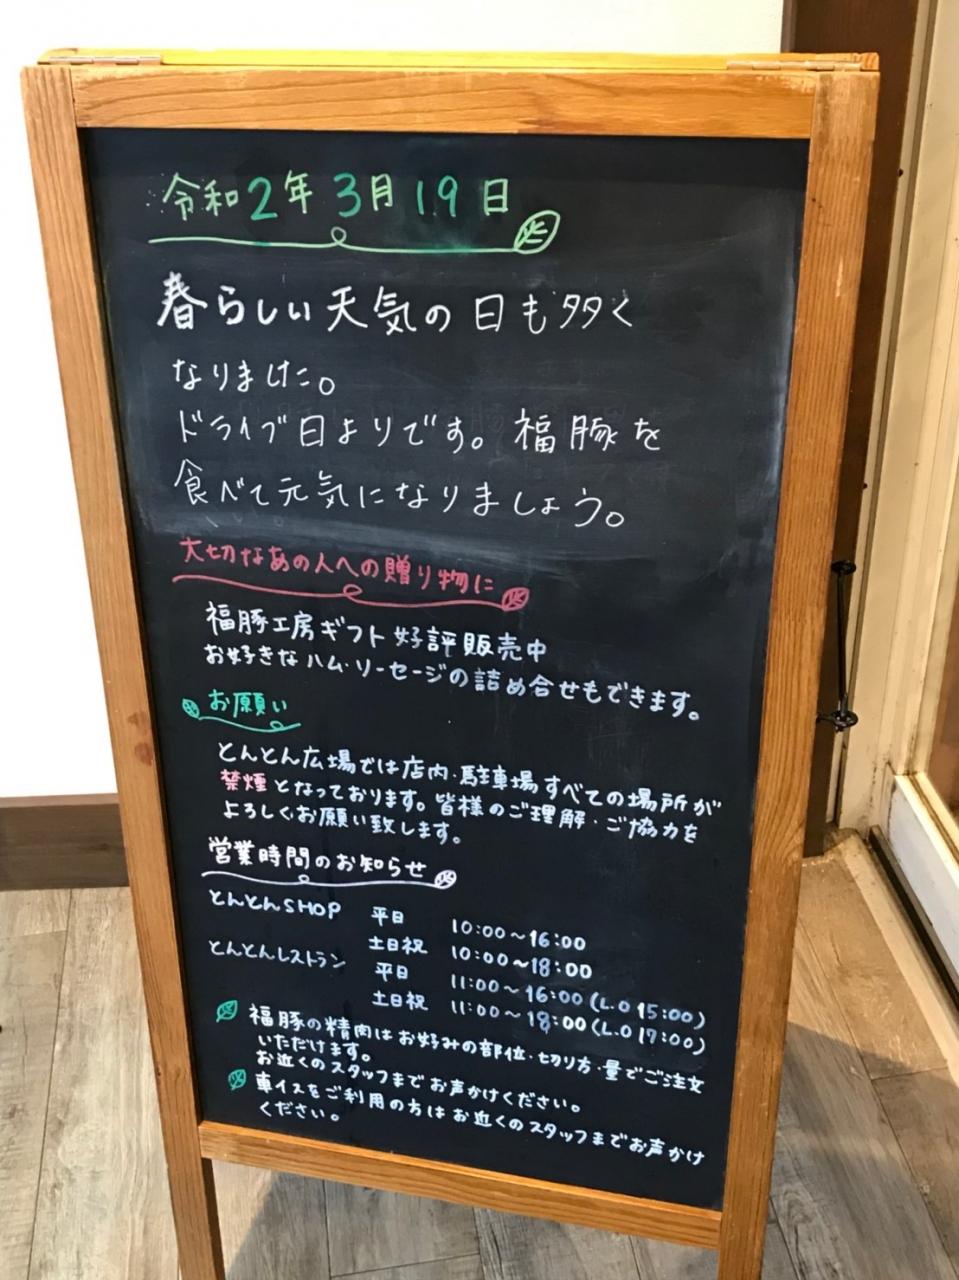 令和2年3月19日
春らしい天気の日も多く
なりました。
ドライブ日よりです。福豚を
食べて元気になりましょう。
大切なあの人への贈り物に
福豚工房ギフト好評販売中
お好きなハム・ソーセージの詰め合せもできます。
お願い
とんとん広場では店内・駐車場すべての場所が
禁煙となっております。皆様のご理解・ご協力を
よろしくお願い致します。
営業時間のお知らせ
とんとんSHOP 平日 10:00～16:00
土日祝 10:00～18:00
とんとんレストラン 平日 11:00～16:00(L.O 15:00)
土日祝 11:00～18:00(L.O 17:00)
福豚の精肉はお好みの部位・切り方・量でご注文
いただけます。
お近くのスタッフまでお声かけください。
車イスをご利用の方はお近くのスタッフまでお声かけ
ください。